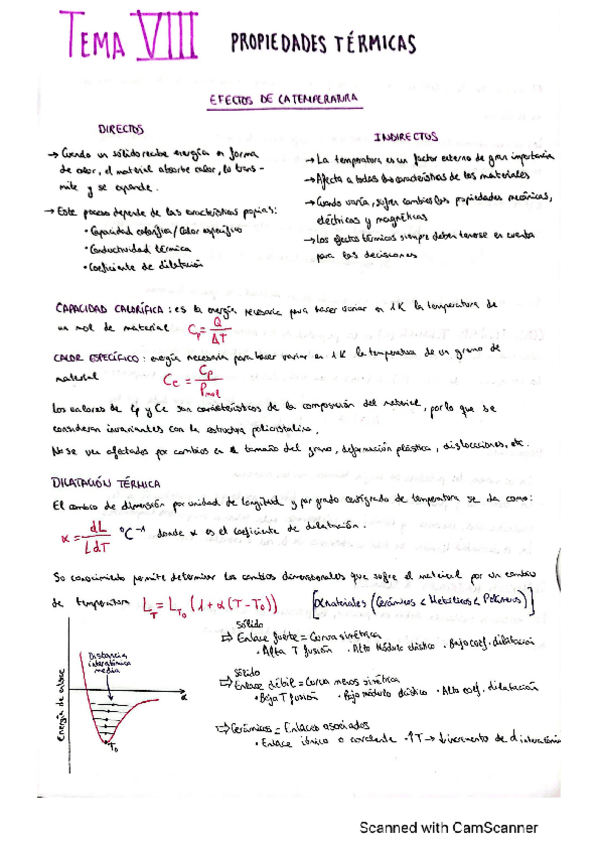 TEMA VIII PROPIEDADES TÉRMICAS
EFECTOS DE LA TEMPERATURA
DIRECTOS
→ Cuando un sólido recibe energía en forma
de calor, el material absorbe calor, lo trans-
mite y se expande.
→ Este proceso depende de las características propias:
• Capacidad calorífica / Calor específico
• Conductividad térmica
• Coeficiente de dilatación
INDIRECTOS
→ La temperatura es un factor externo de gran importancia
→ Afecta a todas las características de los materiales
→ Cuando varía, sufren cambios las propiedades mecánicas,
eléctricas y magnéticas
→ Los efectos térmicos siempre deben tenerse en cuenta
para las decisiones
CAPACIDAD CALORÍFICA: es la energía necesaria para hacer variar en 1K la temperatura de
un mol de material Cp = Q/ΔT
CALOR ESPECÍFICO: energía necesaria para hacer variar en 1K la temperatura de un gramo de
material Ce = Cp/Pmol
Los valores de Cp y Ce son característicos de la composición del material, por lo que se
consideran invariantes con la estructura policristalina.
No se ven afectados por cambios en el tamaño del grano, deformación plástica, dislocaciones, etc.
DILATACIÓN TÉRMICA
El cambio de dimensión por unidad de longitud y por grado centígrado de temperatura se da como:
α = dL/LdT °C⁻¹ donde α es el coeficiente de dilatación.
Su conocimiento permite determinar los cambios dimensionales que sufre el material por un cambio
de temperatura L_T = L_T₀ (1 + α (T - T₀)) [αmateriales (Cerámicos < Metálicos < Polímeros)]
Sólido
⇒ Enlace fuerte = Curva simétrica
• Alta T fusión • Alto módulo elástico • Bajo coef. dilatación
Sólido
⇒ Enlace débil = Curva menos simétrica
• Baja T fusión • Bajo módulo elástico • Alto coef. dilatación
⇒ Cerámicos = Enlaces asociados
• Enlace iónico o covalente ↑T →
Energía de enlace
Distancia
interatómica
media
a
T₀
Scanned with CamScanner